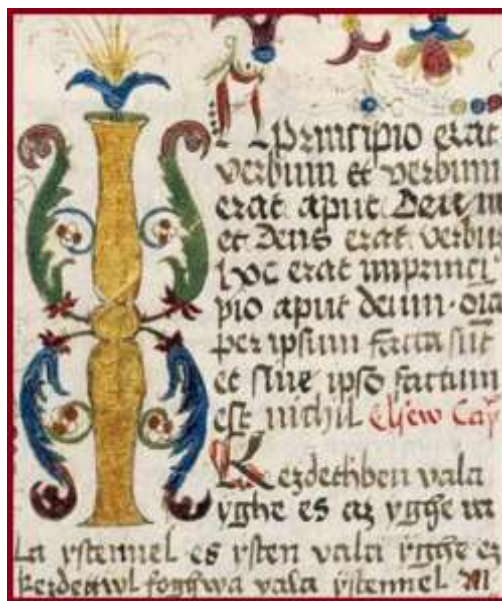 principio erat
verbum et verbum
erat aput Deum
et Deus erat verbu
hoc erat inprinci
pio aput deum. oīa
per ipsum facta sūt
et sine ipso factum
est nichil Elsew Cap
Kezdethben vala
yghe es az ygghe va
La ystennel es ysten vala ygghe ez
kezdettwl foghwa vala ystennel